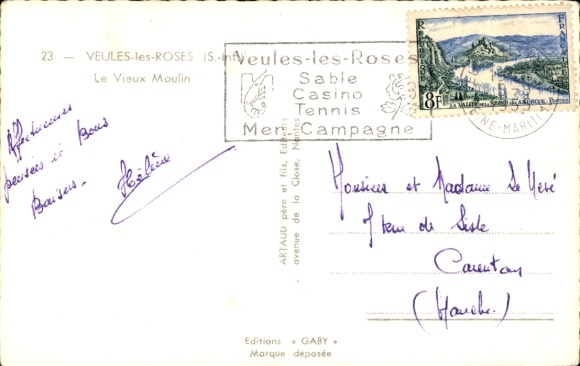 23 — VEULES-les-ROSES (S.-Inf.)
Le Vieux Moulin
Veules-les-Roses
Sable
Casino
Tennis
Mer Campagne
8F
LA VALLÉE DE LA SEINE AUX ANDELYS
POSTES
Affectueuses
pensées et Bons
Baisers.
Hélène
ARTAUD père et fils, Editeurs
avenue de la Close, Nantes
Monsieur et Madame Le
7 rue de
Carentan
(Manche)
Editions « GABY »
Marque déposée